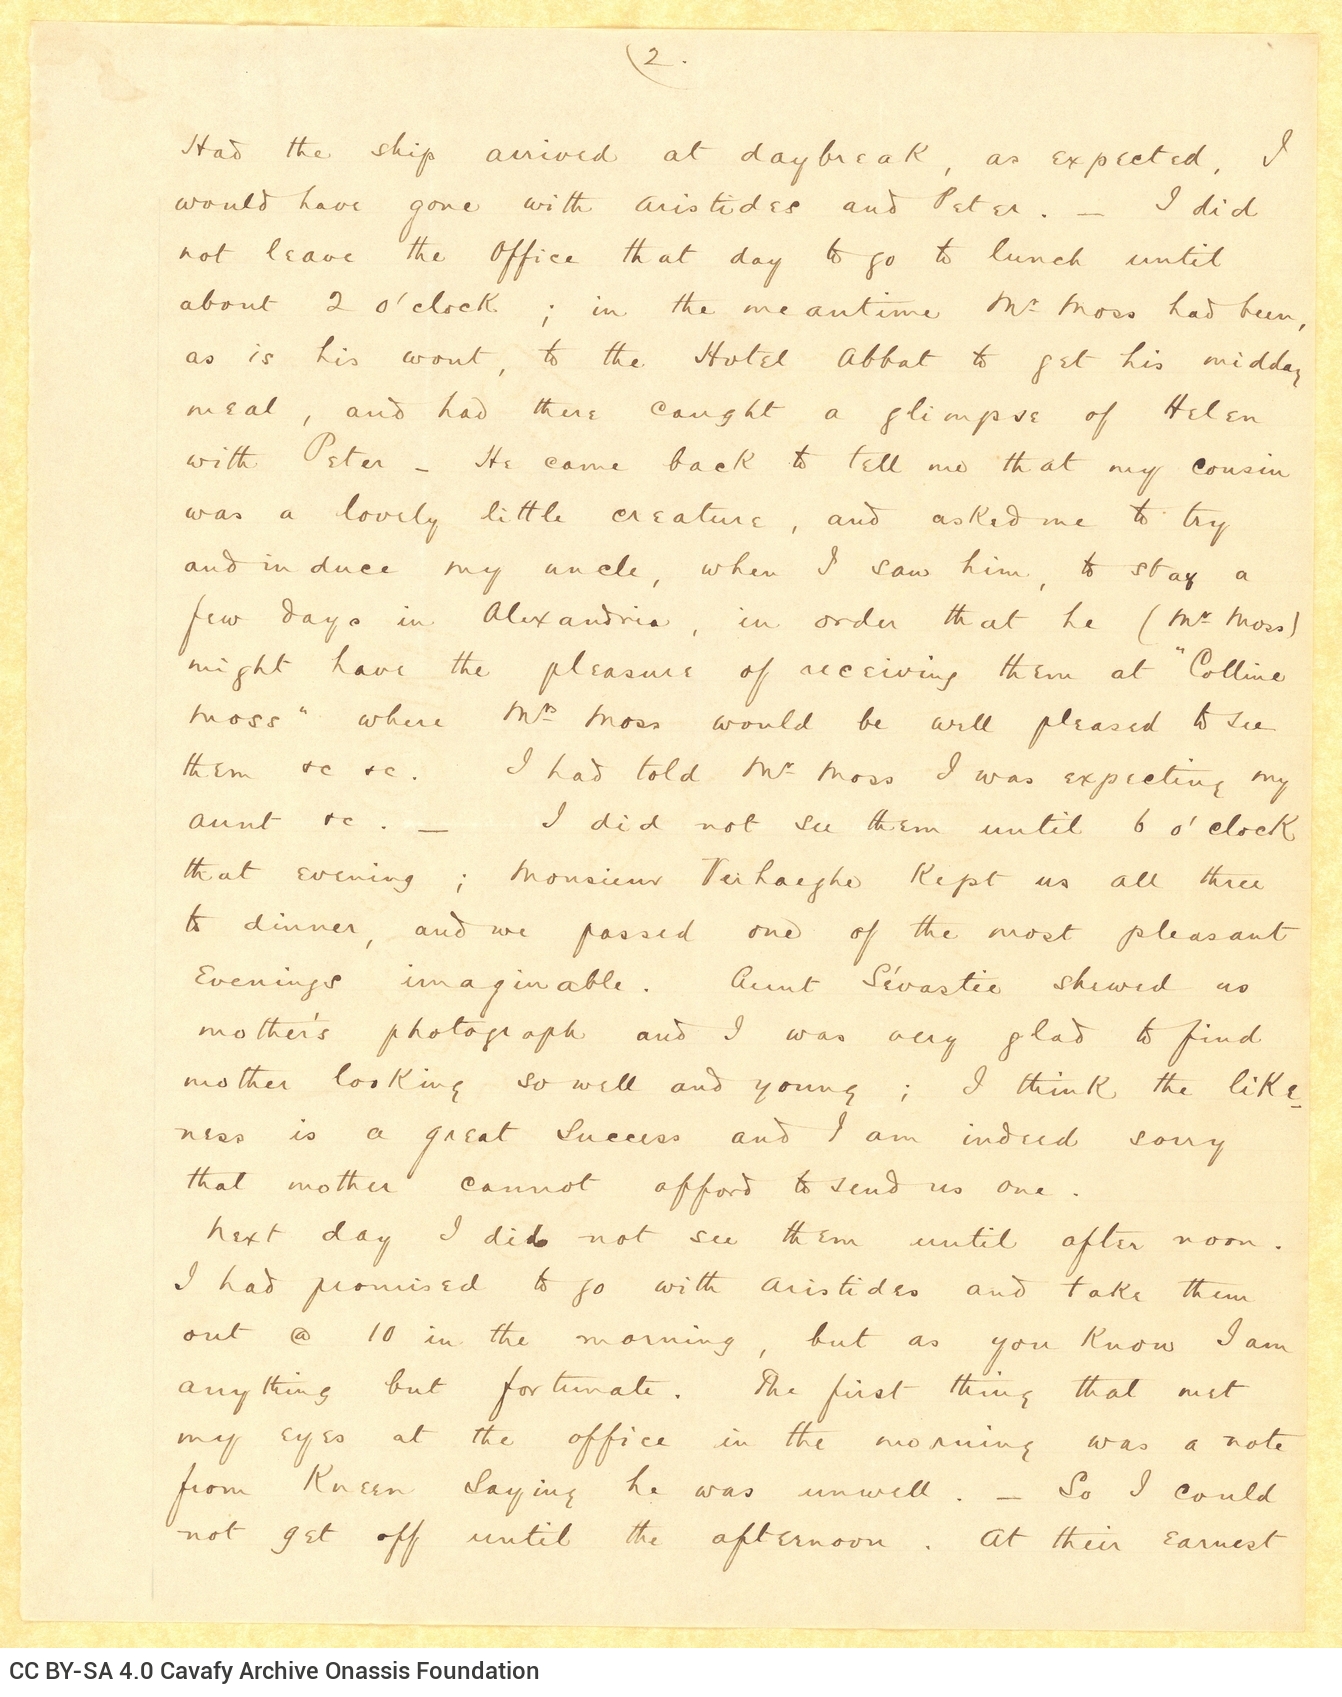 (2.
Had the ship arrived at daybreak, as expected, I
would have gone with Aristides and Peter. — I did
not leave the Office that day to go to lunch until
about 2 o'clock ; in the meantime Mr Moss had been,
as is his wont, to the Hotel Abbat to get his midday
meal, and had there caught a glimpse of Helen
with Peter — He came back to tell me that my cousin
was a lovely little creature, and asked me to try
and induce my uncle, when I saw him, to stay a
few days in Alexandria, in order that he (Mr Moss)
might have the pleasure of receiving them at "Colline
Moss" where Mrs Moss would be well pleased to see
them &c &c. I had told Mr Moss I was expecting my
aunt &c. — I did not see them until 6 o'clock
that evening ; Monsieur Verhaeghe kept us all three
to dinner, and we passed one of the most pleasant
Evenings imaginable. Aunt Sévastie shewed us
mother's photograph and I was very glad to find
mother looking so well and young ; I think the like-
ness is a great success and I am indeed sorry
that mother cannot afford to send us one.
Next day I did not see them until after noon.
I had promised to go with Aristides and take them
out @ 10 in the morning, but as you know I am
anything but fortunate. The first thing that met
my eyes at the office in the morning was a note
from Kneen saying he was unwell. — So I could
not get off until the afternoon. At their earnest
CC BY-SA 4.0 Cavafy Archive Onassis Foundation